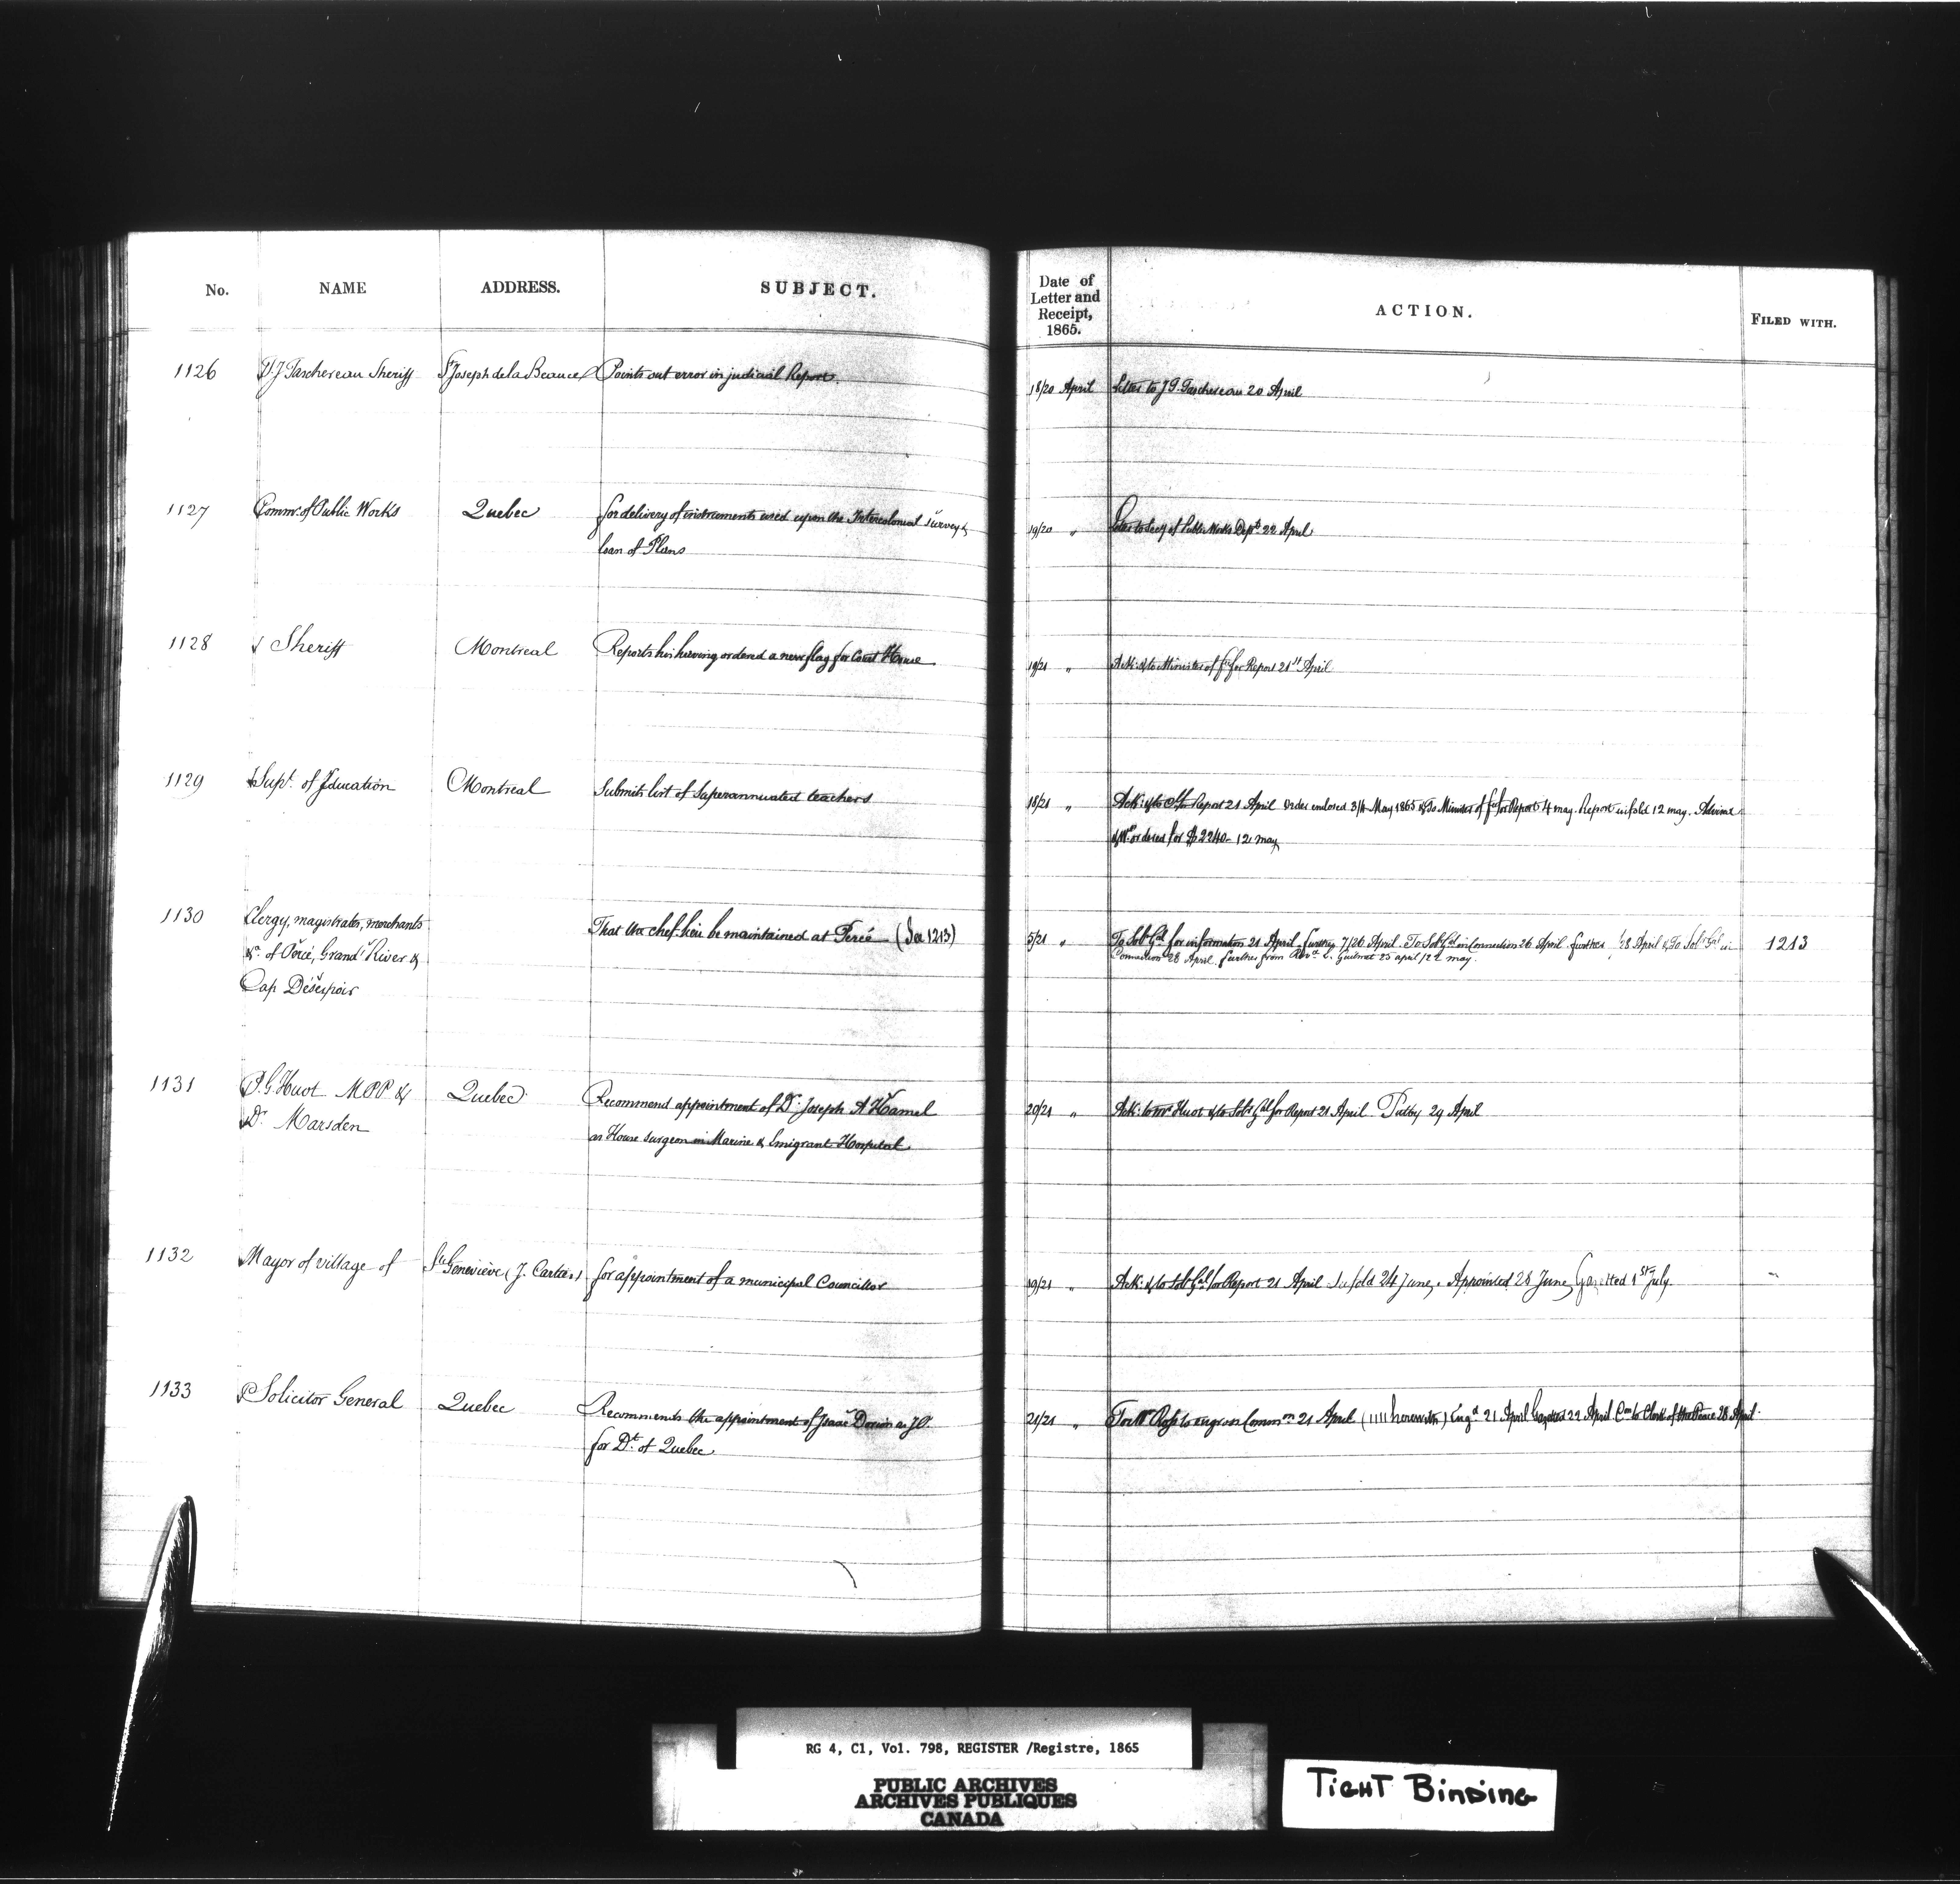 No. NAME ADDRESS. SUBJECT. Date of Letter and Receipt, 1865. ACTION. FILED WITH.
1126 Taschereau Sheriff St Joseph de la Beauce Points out error in judicial Report. 18/20 April Letter to J. G. Taschereau 20 April
1127 Commr. of Public Works Quebec for delivery of instruments used upon the Intercolonial survey &
loan of Plans
19/20 " Letter to Secy of Public Works Dept. 22 April
1128 Sheriff Montreal Reports his having ordered a new flag for Court House 19/21 " Ack: & to Minister of for Report 21st April
1129 Supt. of Education Montreal Submits list of Superannuated teachers 18/21 " Ack: & to for Report 21 April Order endored 3/4 May 1865 & To Minister of for Report 4 may. Report infold 12 may.
ordered for $2240- 12 may
1130 Clergy, magistrates, merchants
&c. of Percé, Grand River &
Cap Désespoir
That the chef-lieu be maintained at Percé (See 1213) 5/21 " To Solr Gal for information 21 April further 7/26 April. To Solr Gal in connection 26 April further /28 April & To Solr Gal in
Connection 28 April. further from Revd. Guilmet 25 april /22 may. 1213
1131 P. G. Huot MPP &
Dr. Marsden
Quebec Recommend appointment of Dr. Joseph A Hamel
as House surgeon in Marine & Emigrant Hospital
20/21 " Ack: to Mr Huot & to Solr Gal for Report 21 April 29 April
1132 Mayor of village of Ste Geneviève (J. Cartier) for appointment of a municipal Councillor 19/21 " Ack: & to Solr Gal for Report 21 April Infold 24 June. Appointed 28 June, Gazetted 1st July.
1133 Solicitor General Quebec Recommends the appointment of Isaac Dorion as JP.
for Dt. of Quebec
21/21 " To Mr Ross to engross Commn. 21 April (1111 herewith) Engd 21 April Gazetted 22 April Con to Clerk of the Peace 28 April
RG 4, C1, Vol. 798, REGISTER /Registre, 1865
PUBLIC ARCHIVES
ARCHIVES PUBLIQUES
CANADA
TIGHT BINDING